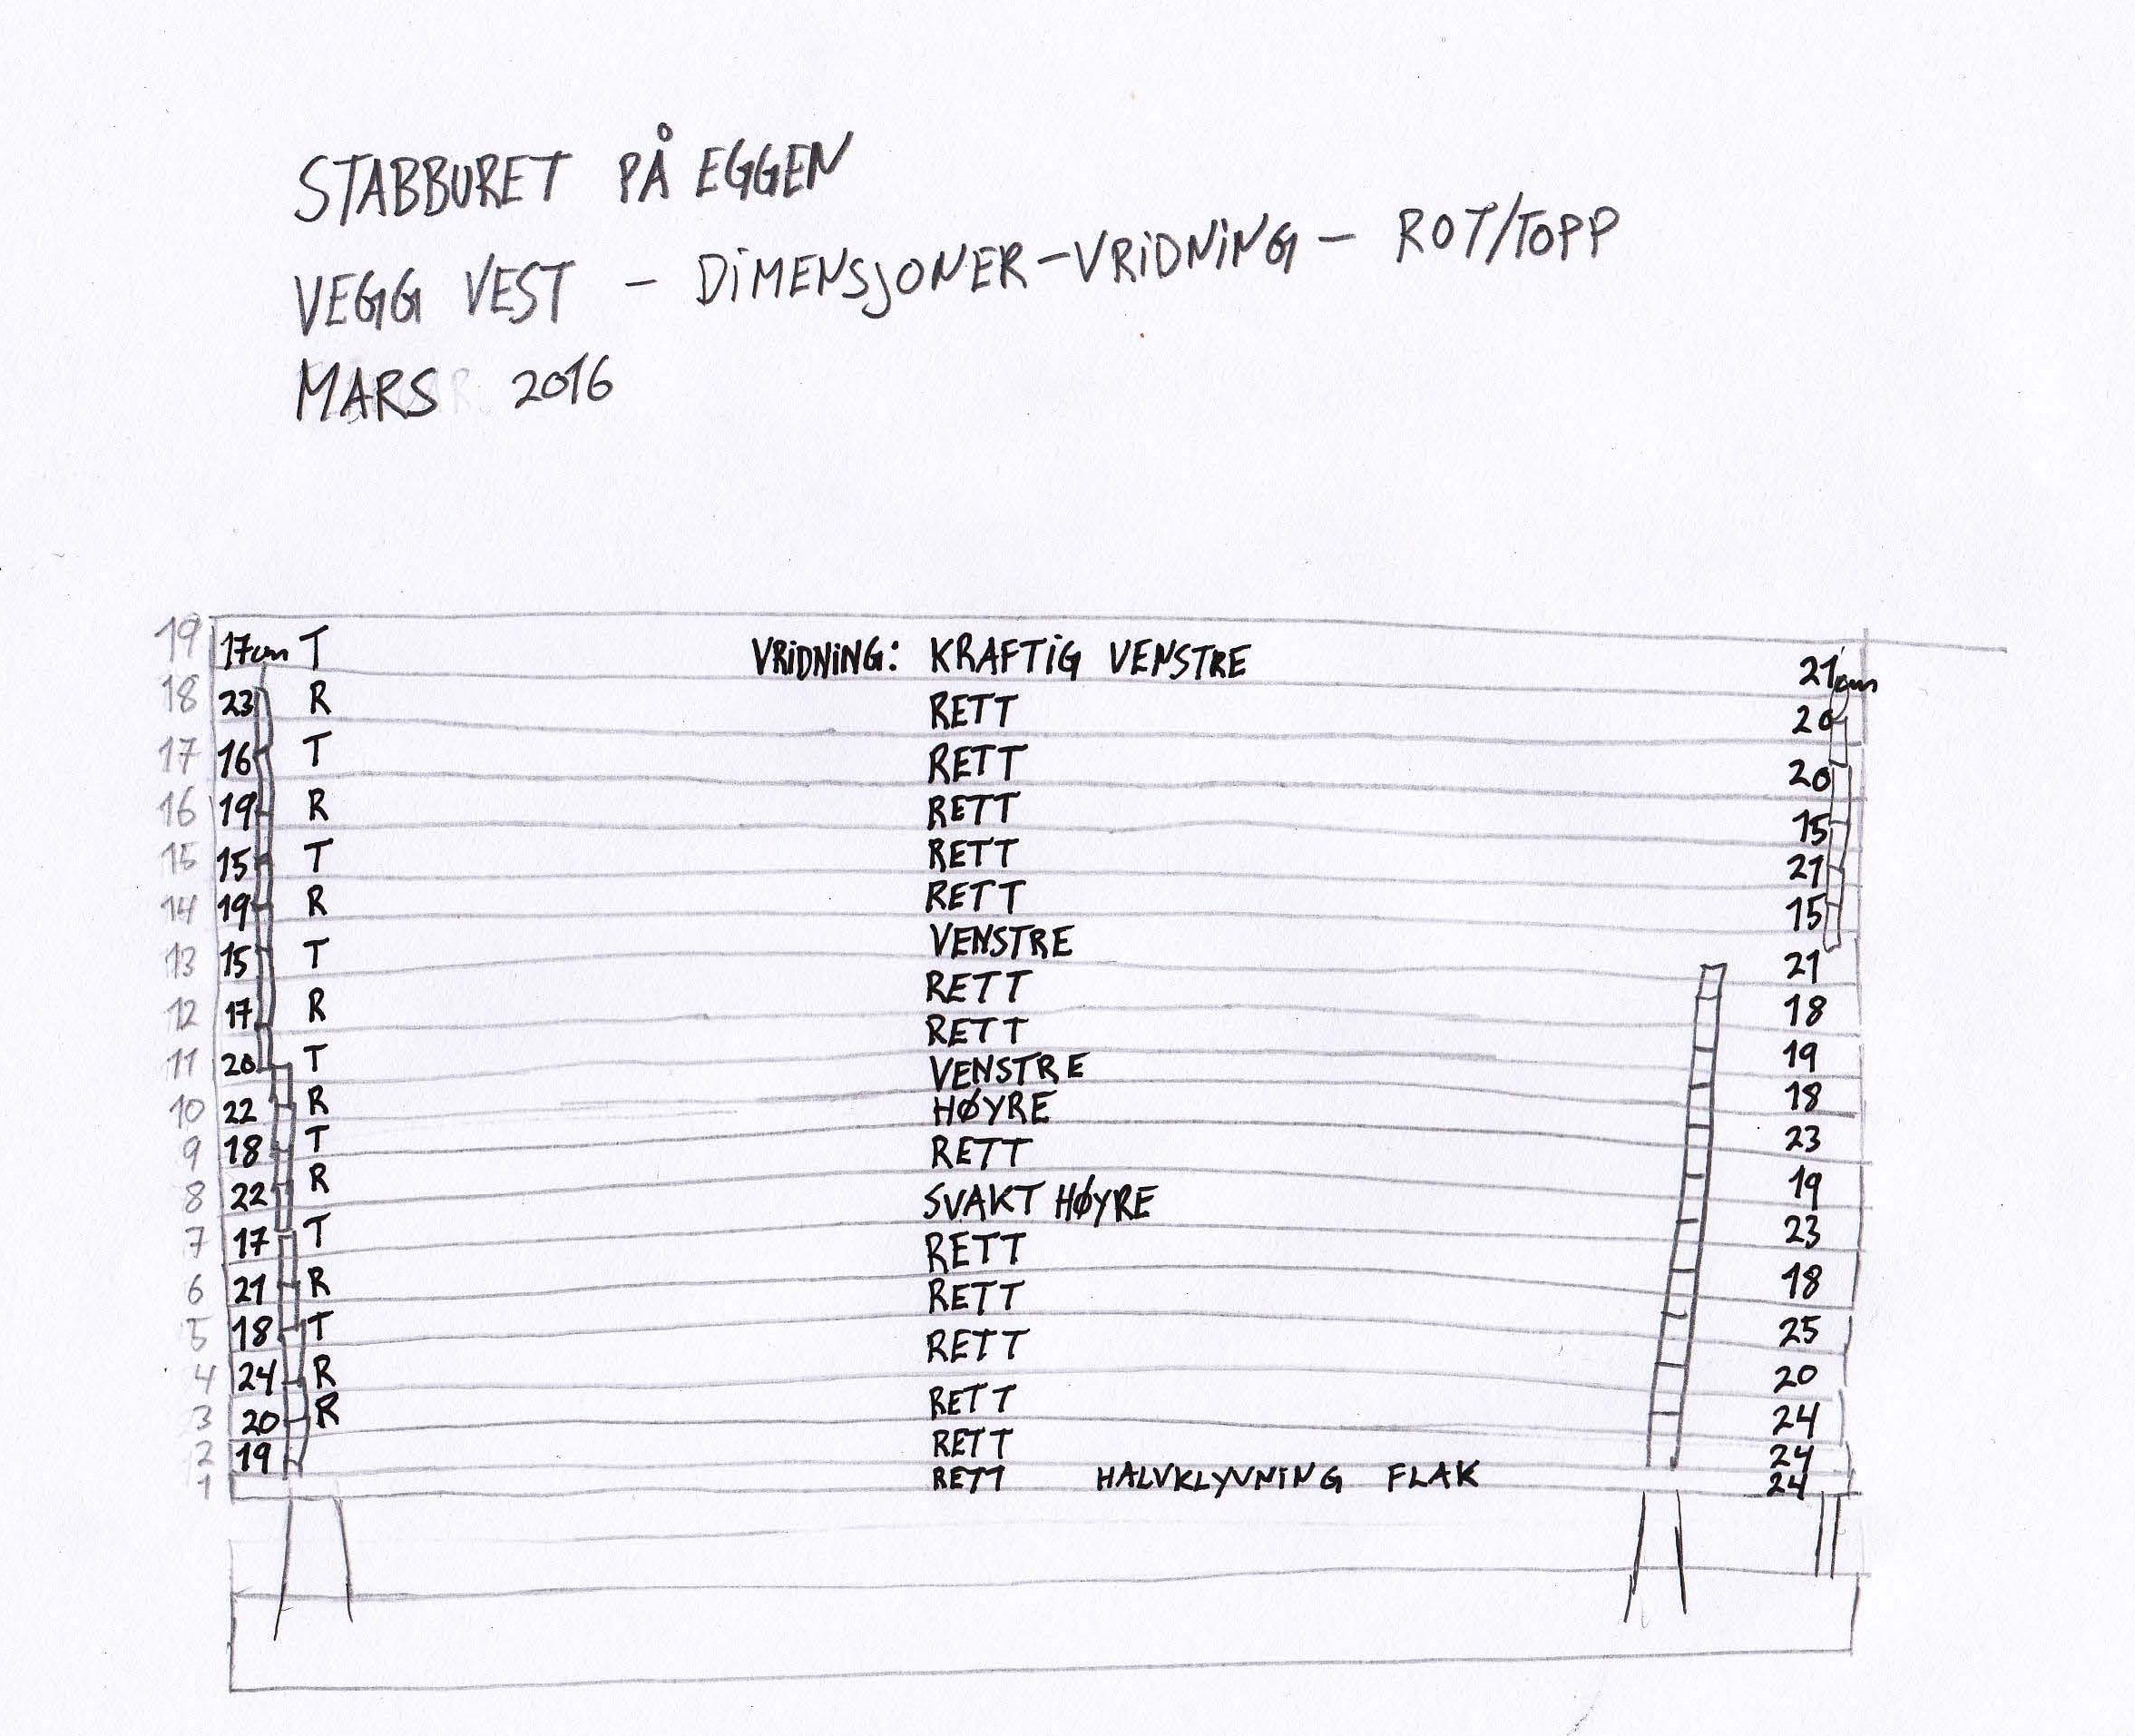 STABBURET PÅ EGGEN
VEGG VEST – DIMENSJONER – VRIDNING – ROT/TOPP
MARS 2016
19 17cm T VRIDNING: KRAFTIG VENSTRE 21cm
18 23 R RETT 20
17 16 T RETT 20
16 19 R RETT 15
15 15 T RETT 21
14 19 R RETT 15
13 15 T VENSTRE 21
12 17 R RETT 18
11 20 T RETT 19
10 22 R VENSTRE 18
9 18 T HØYRE 23
8 22 R RETT 19
7 17 T SVAKT HØYRE 23
6 21 R RETT 18
5 18 T RETT 25
4 24 R RETT 20
3 20 R RETT 24
2 19 RETT 24
1 RETT HALVKLYVNING FLAK 24